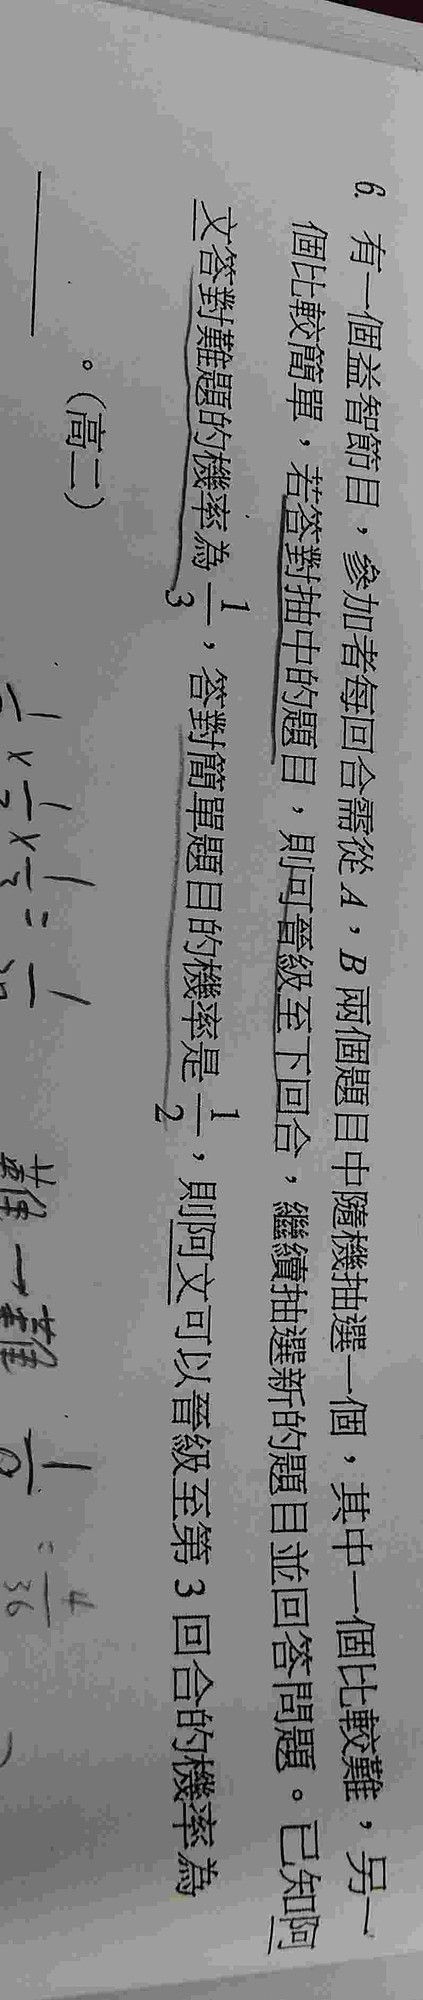 6. 有一個益智節目，參加者每回合需從 A，B 兩個題目中隨機抽選一個，其中一個比較難，另一
個比較簡單，若答對抽中的題目，則可晉級至下回合，繼續抽選新的題目並回答問題。已知阿
文答對難題的機率為 1/3，答對簡單題目的機率是 1/2，則阿文可以晉級至第 3 回合的機率為
______。(高二)
難→難 1/9 = 4/36